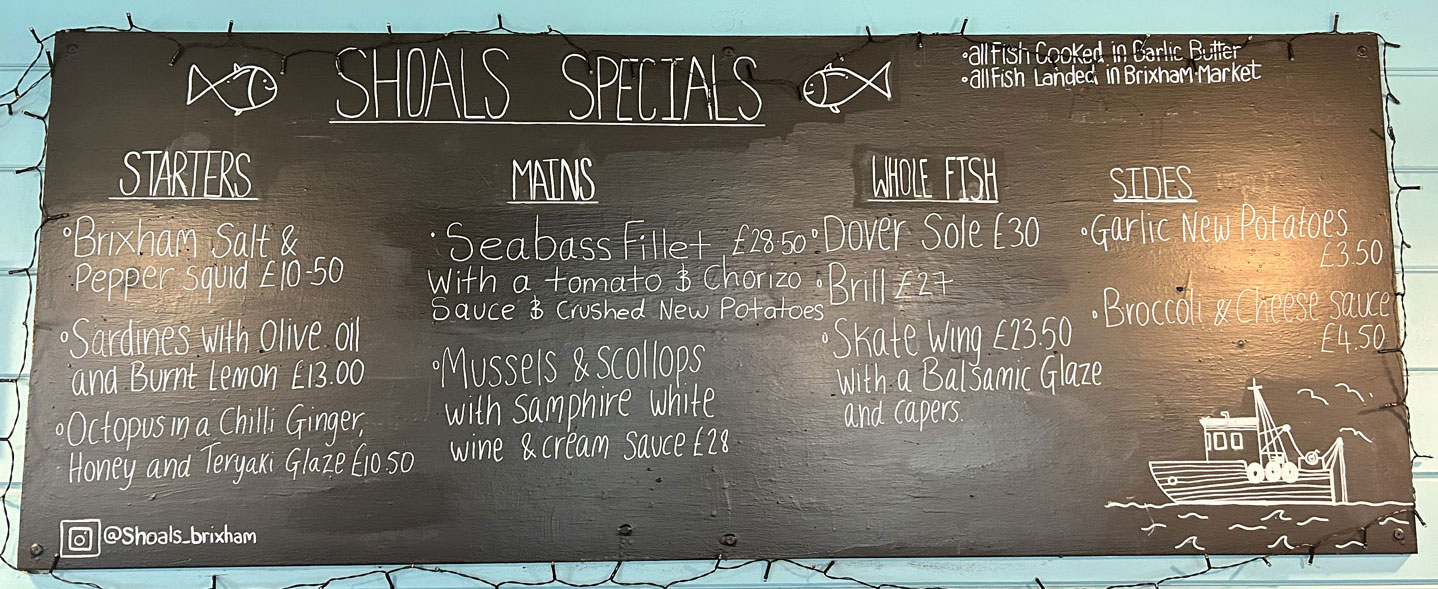 SHOALS SPECIALS
•all Fish Cooked in Garlic Butter
•all Fish Landed in Brixham Market
STARTERS
•Brixham Salt &
Pepper squid £10-50
•Sardines with Olive oil
and Burnt Lemon £13.00
•Octopus in a Chilli Ginger,
Honey and Teryaki Glaze £10.50
@Shoals_brixham
MAINS
•Seabass Fillet £28.50
With a tomato & Chorizo
Sauce & Crushed New Potatoes
•Mussels & Scollops
with Samphire white
wine & cream sauce £28
WHOLE FISH
•Dover Sole £30
•Brill £27
•Skate Wing £23.50
with a Balsamic Glaze
and capers.
SIDES
•Garlic New Potatoes
£3.50
•Broccoli & Cheese sauce
£4.50